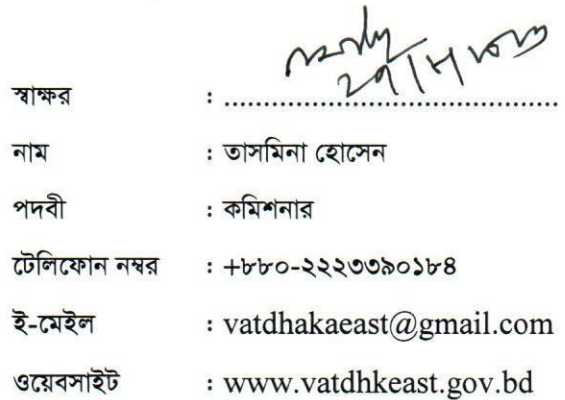 স্বাক্ষর : ................................................
নাম : তাসমিনা হোসেন
পদবী : কমিশনার
টেলিফোন নম্বর : +৮৮০-২২২৩৩৯০১৮৪
ই-মেইল : vatdhakaeast@gmail.com
ওয়েবসাইট : www.vatdhkeast.gov.bd